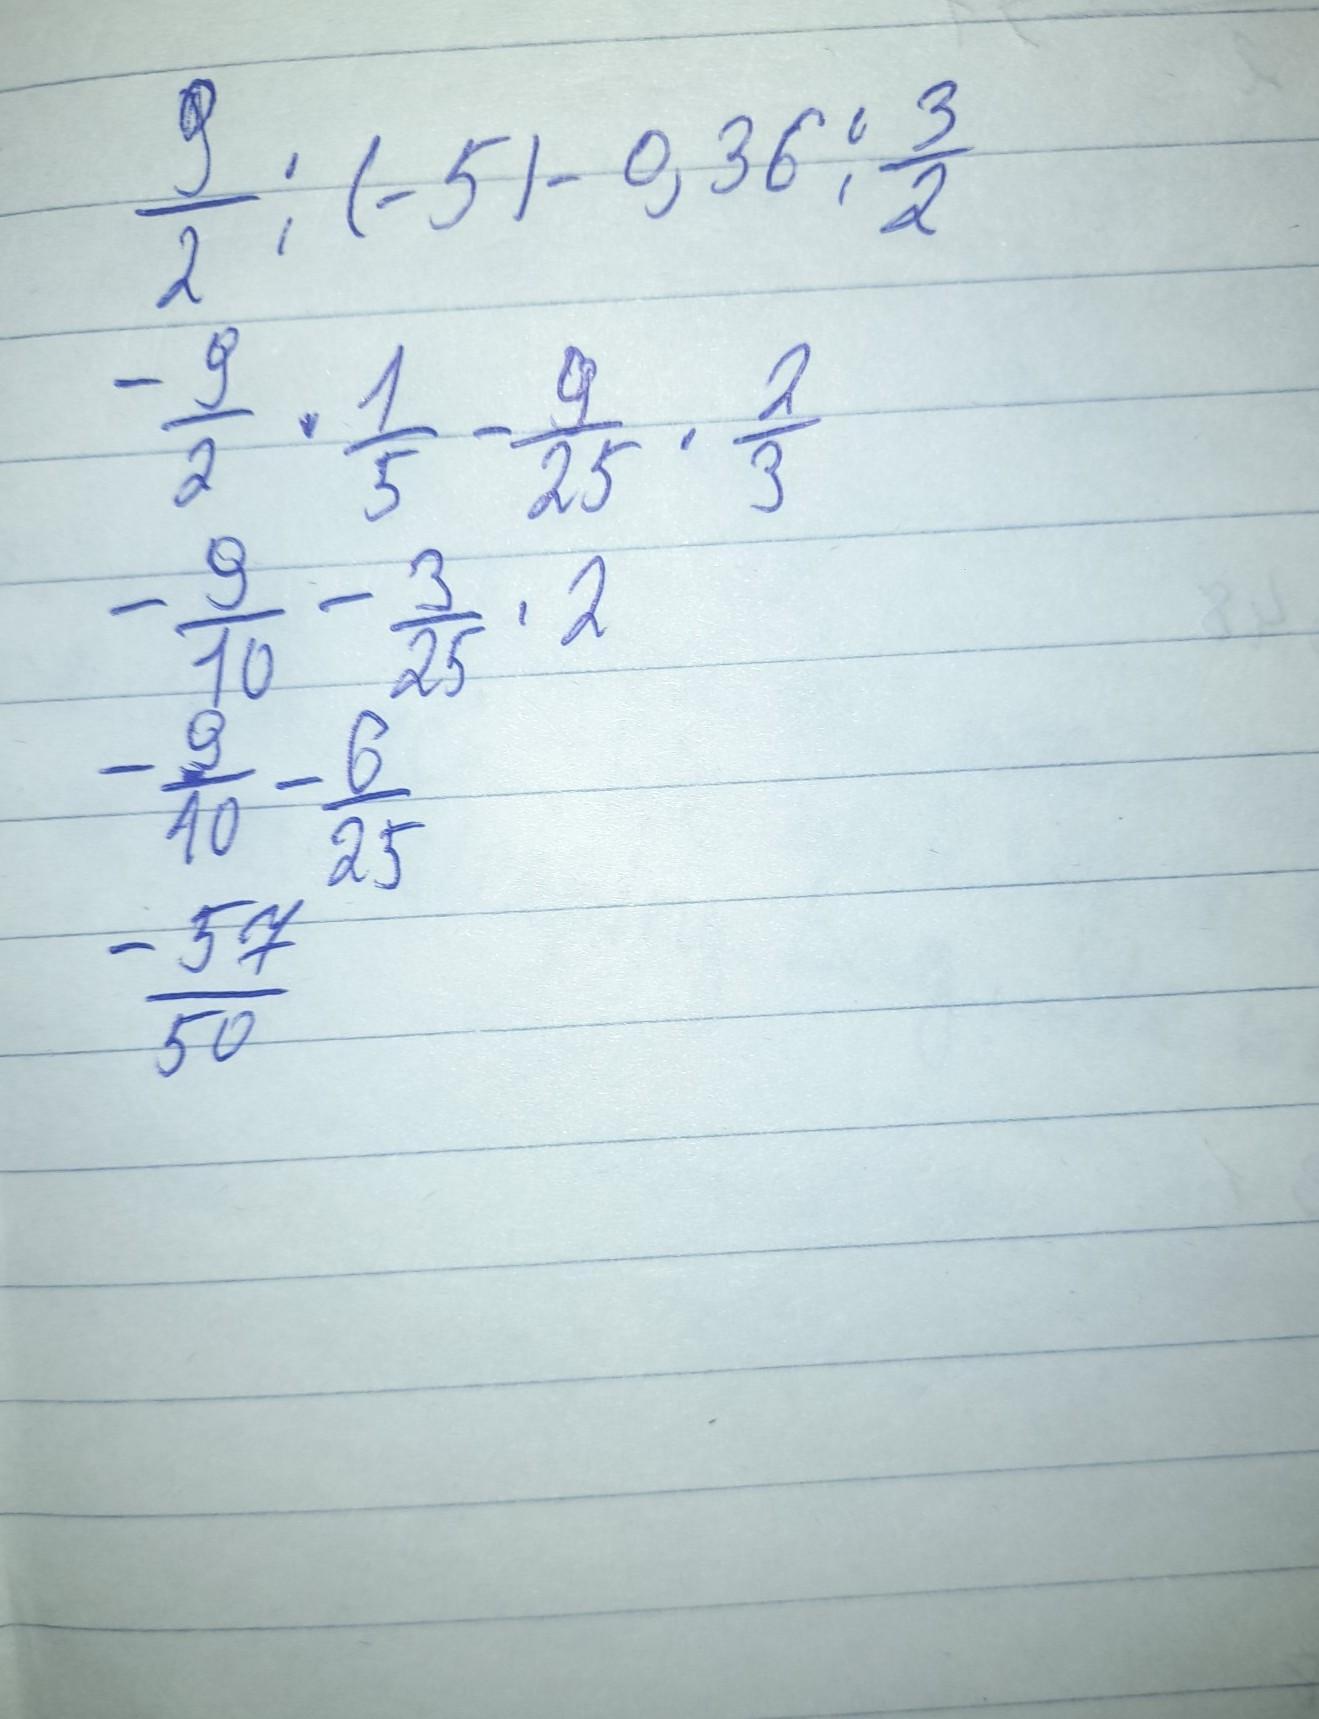 9/2 : (-5) - 0,36 : 3/2
- 9/2 · 1/5 - 9/25 · 2/3
- 9/10 - 3/25 · 2
- 9/10 - 6/25
- 57/50